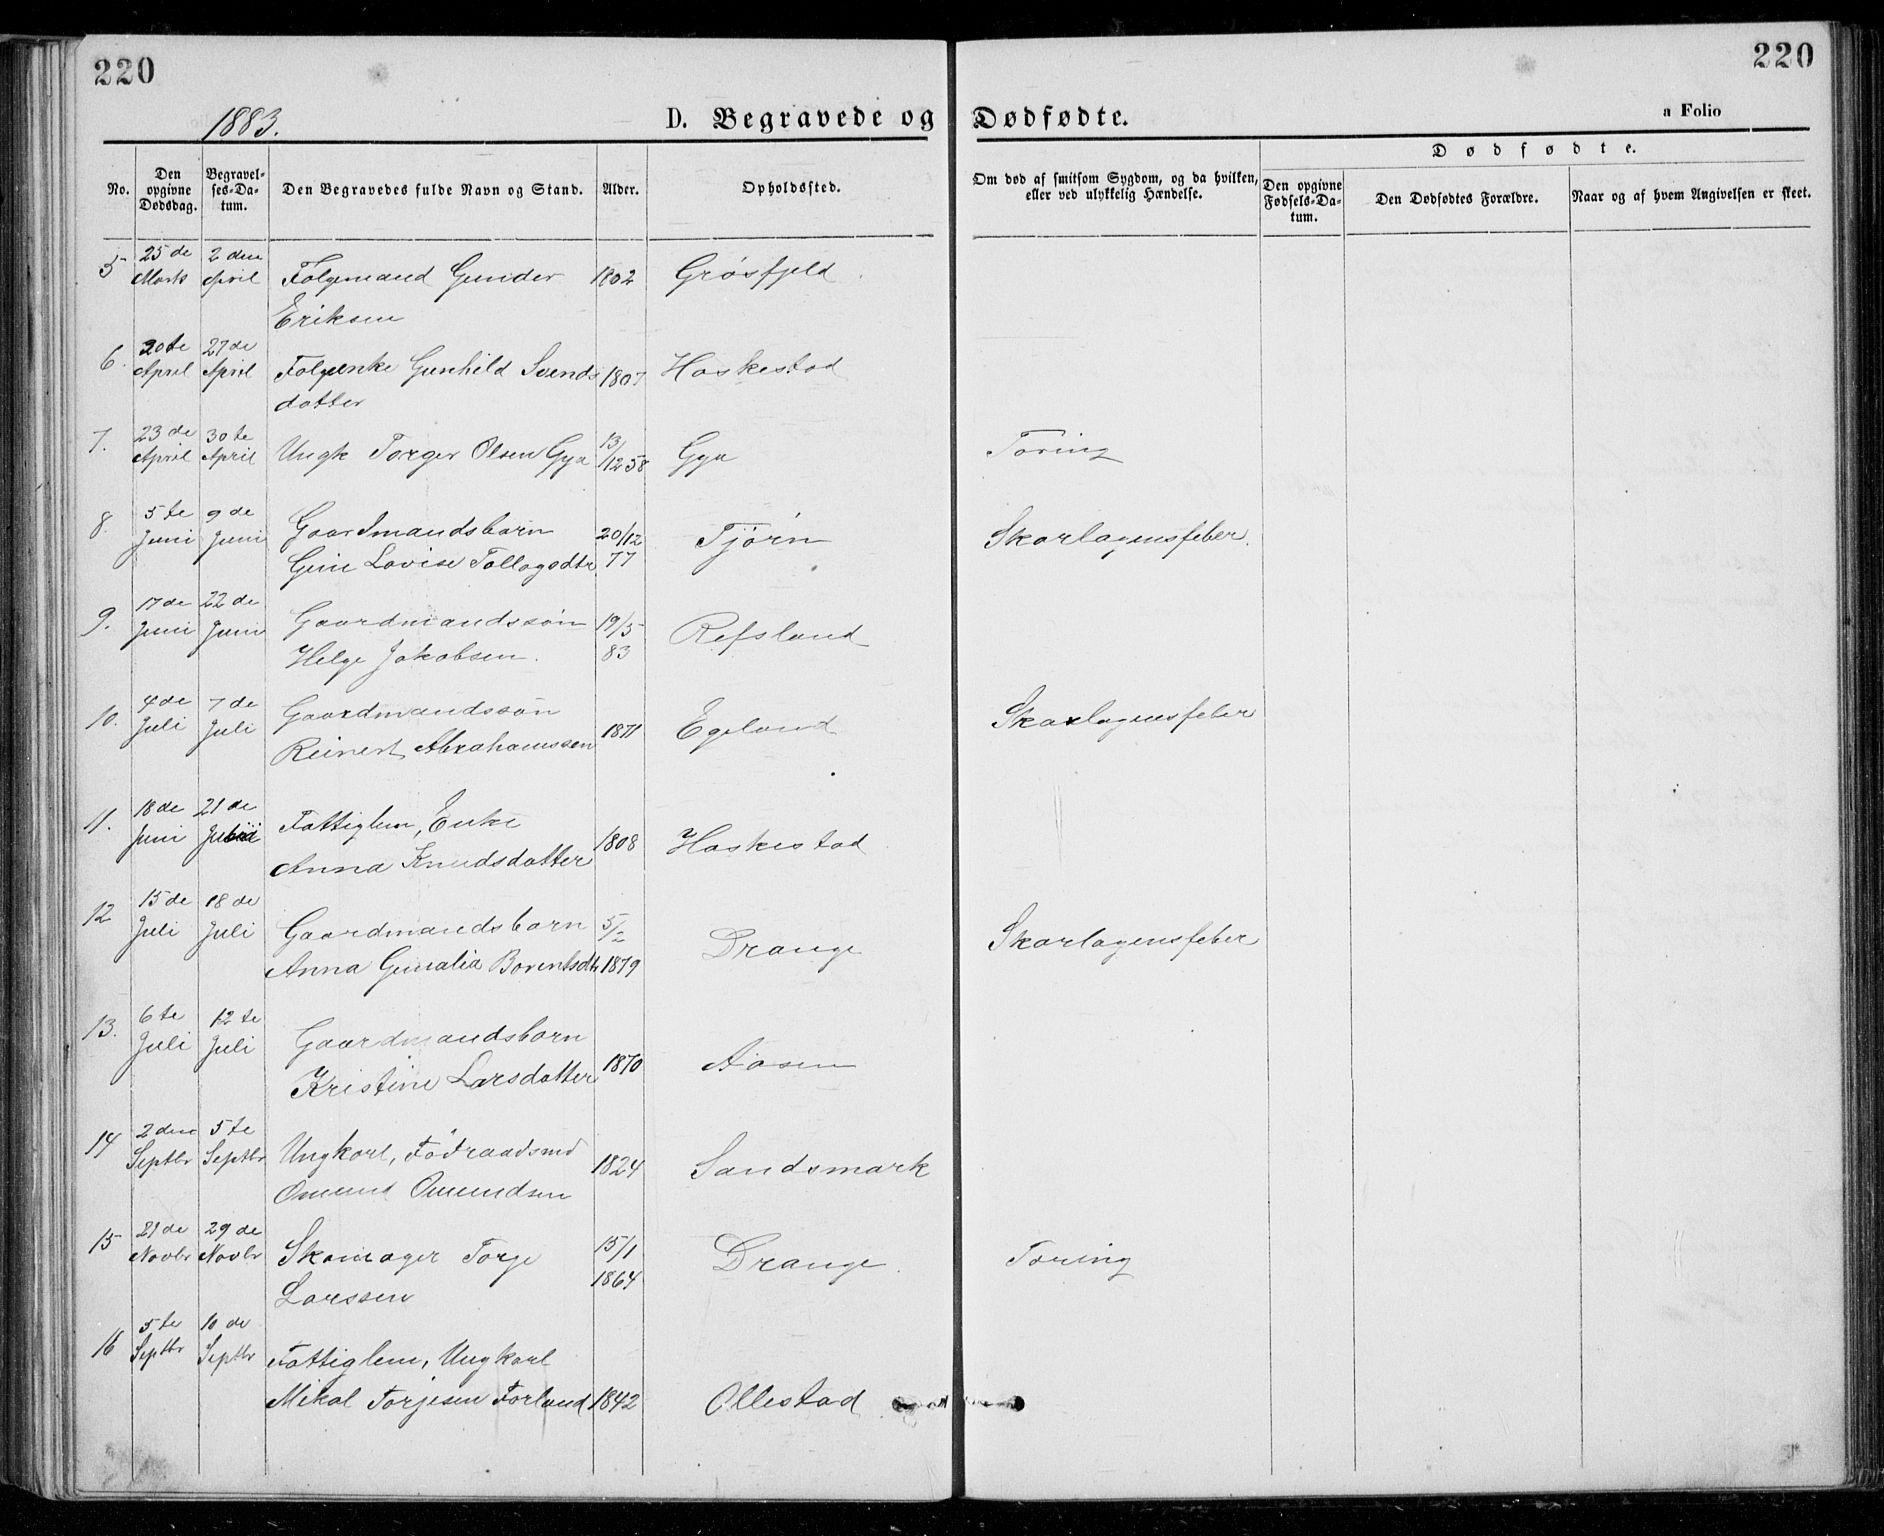 220
220
1883.
D. Begravede og Dødfødte.
a Folio
No.
Den opgivne Dødsdag.
Begravel-ses-Da-tum.
Den Begravedes fulde Navn og Stand.
Alder.
Opholdssted.
Om død af smitsom Sygdom, og da hvilken, eller ved ulykkelig Hændelse.
Dødfødte.
Den opgivne Fødsels-Da-tum.
Den Dødfødtes Forældre.
Naar og af hvem Angivelsen er skeet.
5 25de Marts 2den April Følgemand Gunder 1802 Grøsfjeld
Eriksen
6. 20te April 27de April Folgenke Gunhild Svends 1807 Haskestad
datter
7. 23de April 30te April Ungk Torger Olsen Gya 13/12 58 Gya Tæring
8. 5te Juni 9de Juni Gaardmandsbarn 20/12 Tjørn Skarlagensfeber.
Gine Lovise Tollagsdtr 77
9. 17de Juni 22de Juni Gaardmandssøn 19/5 Refsland
Helge Jakobsen. 83
10. 4de Juli 7de Juli Gaardmandssøn Egeland Skarlagensfeber
Reinert Abrahamssen 1871
11. 18de Juni 21de Fattiglem, Enke
Anna Knudsdatter 1808 Haskestad
12 15de Juli 18de Juli Gaardmandsbarn 5/2 Drange Skarlagensfeber
Anna Gunalia Borentsdtr 1879
13. 6te Juli 12te Juli Gaardmandsbarn
Kristine Larsdatter 1870 Aasen
14 2den Septbr 5te Septbr Ungkarl, Føderaadsmd 1824 Sandsmark
Omund Omundsen
15 21de Novbr 29de Novbr Skomager Torje 15/1 1864 Drange. Tæring
Larssen
16 5te Septbr 10de Septbr Fattiglem, Ungkarl
Mikal Torjesen Forland 1842 Ollestad